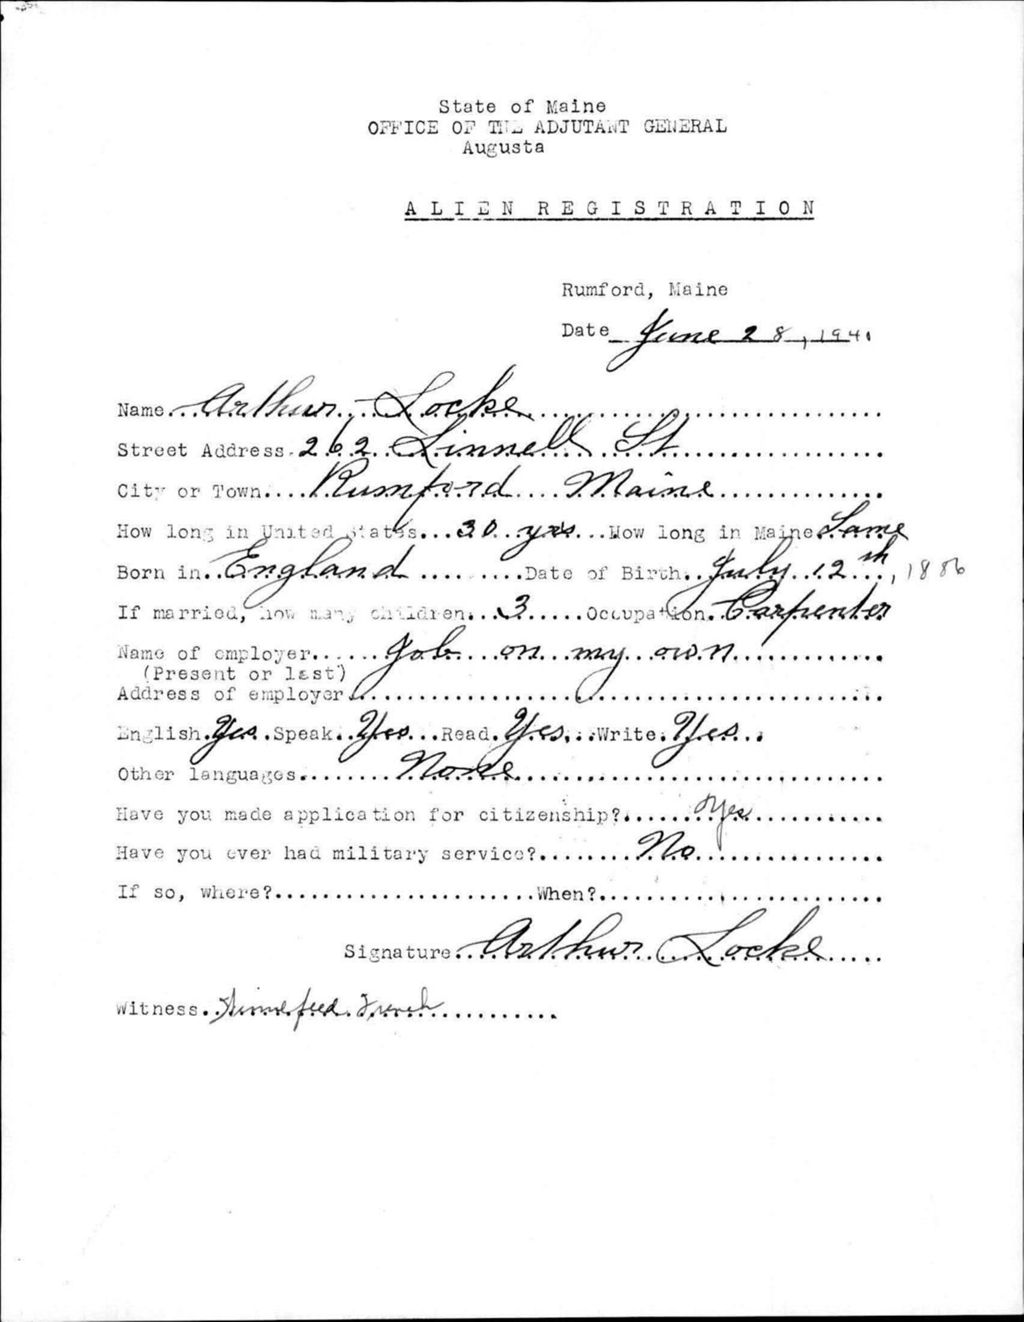 State of Maine
OFFICE OF THE ADJUTANT GENERAL
Augusta
ALIEN REGISTRATION
Rumford, Maine
Date June 28, 1940
Name Arthur Locke
Street Address 262 Linnell St
City or Town Rumford Maine
How long in United States 30 yrs How long in Maine Same
Born in England Date of Birth July 12th, 1886
If married, how many children 3 Occupation Carpenter
Name of employer Job on my own
(Present or last)
Address of employer
English Yes Speak Yes Read Yes Write Yes
Other languages None
Have you made application for citizenship? Yes
Have you ever had military service? No
If so, where? When?
Signature Arthur Locke
Witness Winnefred French